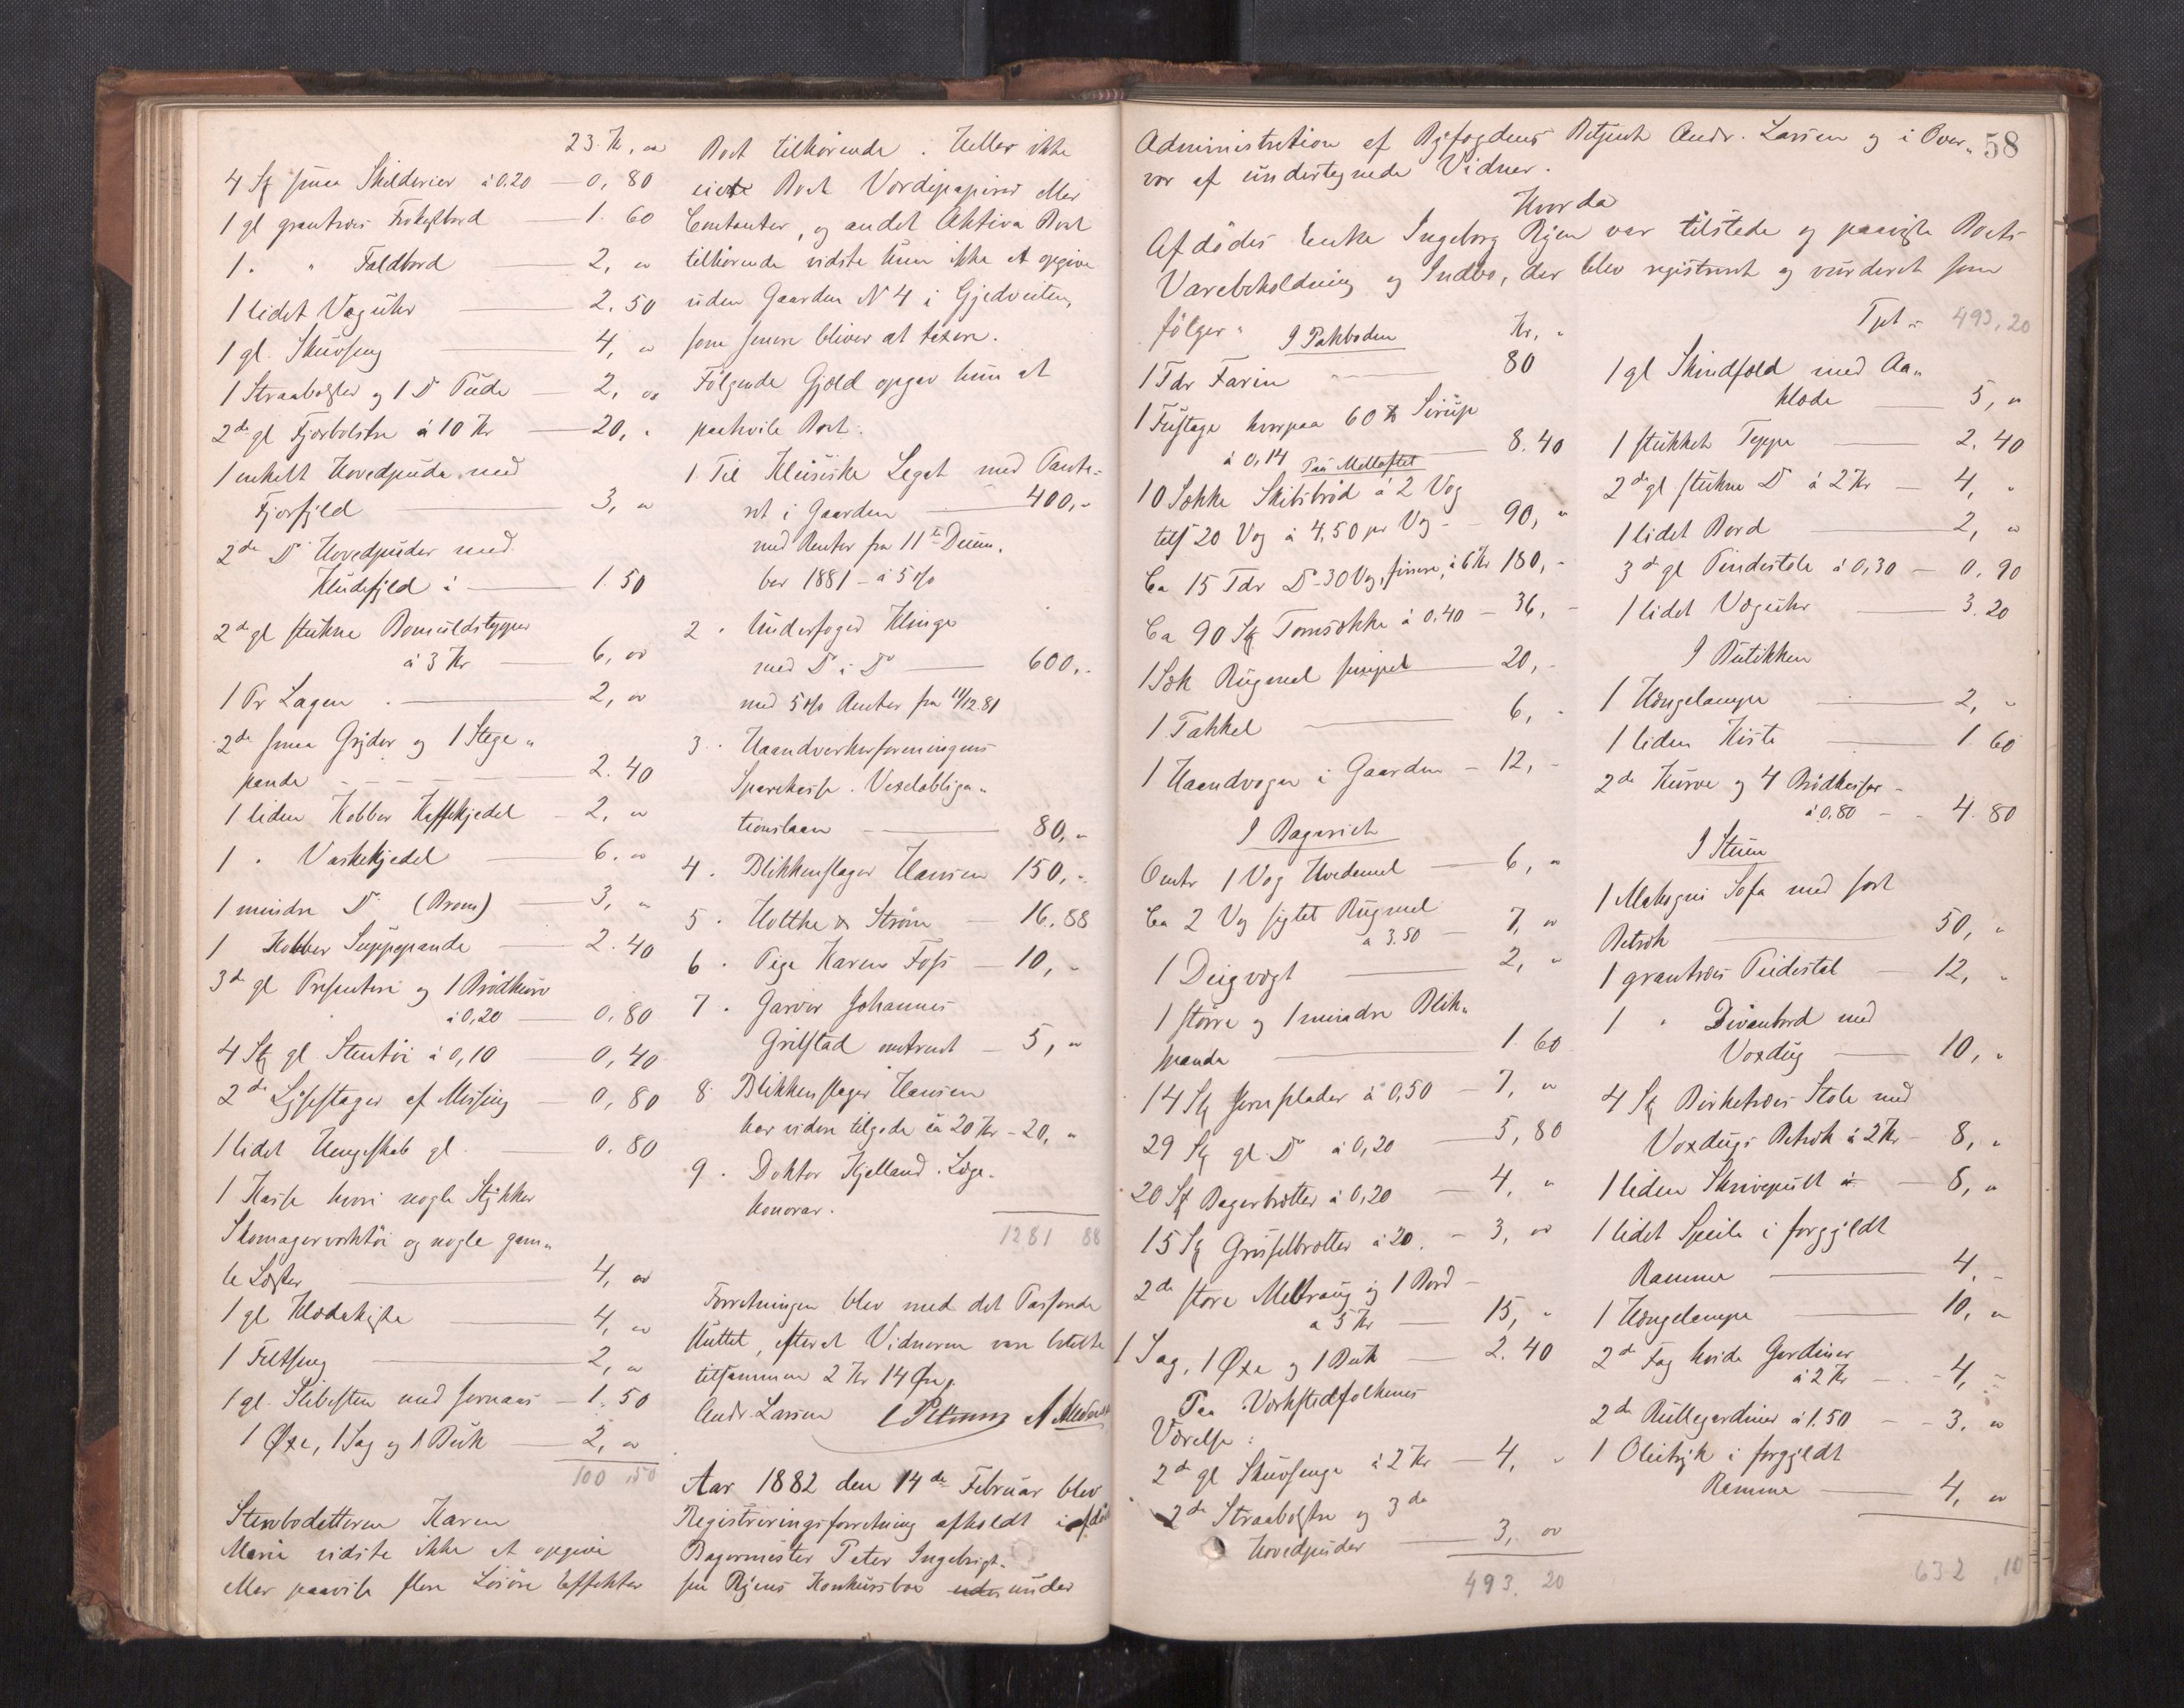 23 Kr, "
4 St smaa Skilderier à 0,20 — 0, 80
1 gl grantræs Frokostbord — 1. 60
1 " " Foldbord — 2, "
1 lidet Væguhr — 2. 50
1 gl. Skuvseng — 4, "
1 Straabolster og 1 Do Pude — 2, "
2de gl Fjærbolstre à 10 Kr — 20, "
1 enkelt Hovedpude med
Fjærfyld — 3, "
2de Do Hovedpuder med
Kludefyld à — 1. 50
2de gl stukne Bomuldstepper
à 3 Kr — 6, "
1 Pr Lagen — 2, "
2de smaa Gryder og 1 Stege-
pande — 2. 40
1 liden Kobber Kaffekjedel — 2, "
1 " Vaskekjedel — 6. "
1 mindre Do — 3, "
1 Kobber Suppepande — 2. 40
3de gl Presenteri og 1 Brødkurv
à 0,20 — 0, 80
4 St gl. Stentøi à 0,10 — 0, 40
2de Lysestager af Messing — 0, 80
1 lidet Hengeskab gl. — 0. 80
1 Kasse hvori nogle Stykker
Skomagerværktøi og nogle gam-
le Læster — 4, "
1 gl Klædekiste — 4, "
1 Feltseng — 2, "
1 gl. Slibesten med Jernaas — 1. 50
1 Øxe, 1 Sag og 1 Buk — 2, "
100,50
Stervbodatteren Karen
Marie vidste ikke at opgive
eller paavise flere Løsøre Effekter
Boet tilhørende. Heller ikke
eiede Boet Værdipapirer eller
Contanter, og andet Aktiva Boet
tilhørende vidste hun ikke at opgive
uden Gaarden N 4 i Gjedveiten,
som senere bliver at taxere.
Følgende Gjæld opgav hun at
paahvile Boet:
1. Til Legat med Pante-
ret i Gaarden — 400,-
med Renter fra 11te Decem-
ber 1881 - à 5 %
2. Underfoged Klinge
med Do i Do — 600,-
med 5 % Renter fra 11/12.81
3. Haandverkerforeningens
Sparekasse. Vexelobliga-
tionslaan — 80, "
4. Blikkenslager Hansen 150,-
5. Holtke & Strøm — 16.88
6. Pige Karen Foss — 10, -
7. Garver Johannes
Grilstad omtrent — 5, "
8. Blikkenslager Hansen
har videre tilgode ca 20 Kr - 20, "
9. Doktor Kjelland. Læge-
honorar.
1281 88
Forretningen blev med det Passerede
sluttet, efterat Vidnerne vare betalte
tilsammen 2 Kr 14 Øre.
Andr. Larsen
Aar 1882 den 14de Februar blev
Registreringsforretning afholdt i afdøde
Bagermester Peter Ingebrigt-
sen Ryens Konkursbo under
58
Administration af Byfogdens Betjent Andr. Larsen og i Over-
vær af undertegnede Vidner.
Hvorda
Afdødes Enke Ingeborg Ryen var tilstede og paaviste Boets
Varebeholdning og Indbo, der blev registreret og vurderet som
følger:
I Pakboden Kr, "
1 Tdr Farin — 80
1 Fustage hvorpaa 60 ℔ Sirup
à 0,14 — 8.40
Paa Melloftet
10 Sække Skibsbrød à 2 Vog
tils 20 Vog à 4,50 pr Vog — 90, "
Ca 15 Tdr Do - 30 Vog, finere, à 6 Kr 180, -
Ca 90 St Tomsække à 0.40 — 36, -
1 Sæk Rugmel simpel — 20, -
1 Takkel — 6, -
1 Haandvogn i Gaarden — 12, -
I Bageriet
Omtr 1 Vog Hvedemel — 6, "
Ca 2 Vog sigtet Rugmel
à 3.50 — 7, "
1 Deigvægt — 2, "
1 større og 1 mindre Blik-
spande — 1. 60
14 St Jernplader à 0,50 — 7, "
29 St gl. Do à 0,20 — 5, 80
20 St Bagerbrætter à 0,20 — 4, "
15 St Grisselbrætter à 20. — 3, "
2de store Meltraug og 1 Bord —
à 5 Kr — 15, "
1 Sag, 1 Øxe og 1 Buk — 2. 40
Paa Værkstedfolkenes
Værelse:
2de gl Skuvsenge à 2 Kr — 4, "
2de Straabolstre og 3de
Hovedpuder — 3, "
493. 20
Tpt " 493,20
1 gl Skindfeld med Aa-
klæde — 5, "
1 stukket Teppe — 2. 40
2de gl. stukne Do à 2 Kr — 4, "
1 lidet Bord — 2, "
3de gl Pindestole à 0,30 — 0. 90
1 lidet Væguhr — 3. 20
I Butikken
1 Hængelampe — 2, "
1 liden Kiste — 1. 60
2de Kurve og 4 Brødkasser —
à 0.80 — 4. 80
I Stuen
1 Mahogni Sofa med sort
Betræk — 50, "
1 grantræs Pidestal — 12, "
1 " Divanbord med
Voxdug — 10, "
4 St Birketræs Stole med
Voxdugs Betræk à 2 Kr — 8, "
1 liden Skrivepult — 8, "
1 lidet Speile i forgyldt
Ramme — 4. -
1 Hængelampe — 10, "
2de Fag hvide Gardiner
à 2 Kr — 4, -
2de Rullegardiner à 1.50 — 3. "
1 Olietryk i forgyldt
Ramme — 4, "
632,10